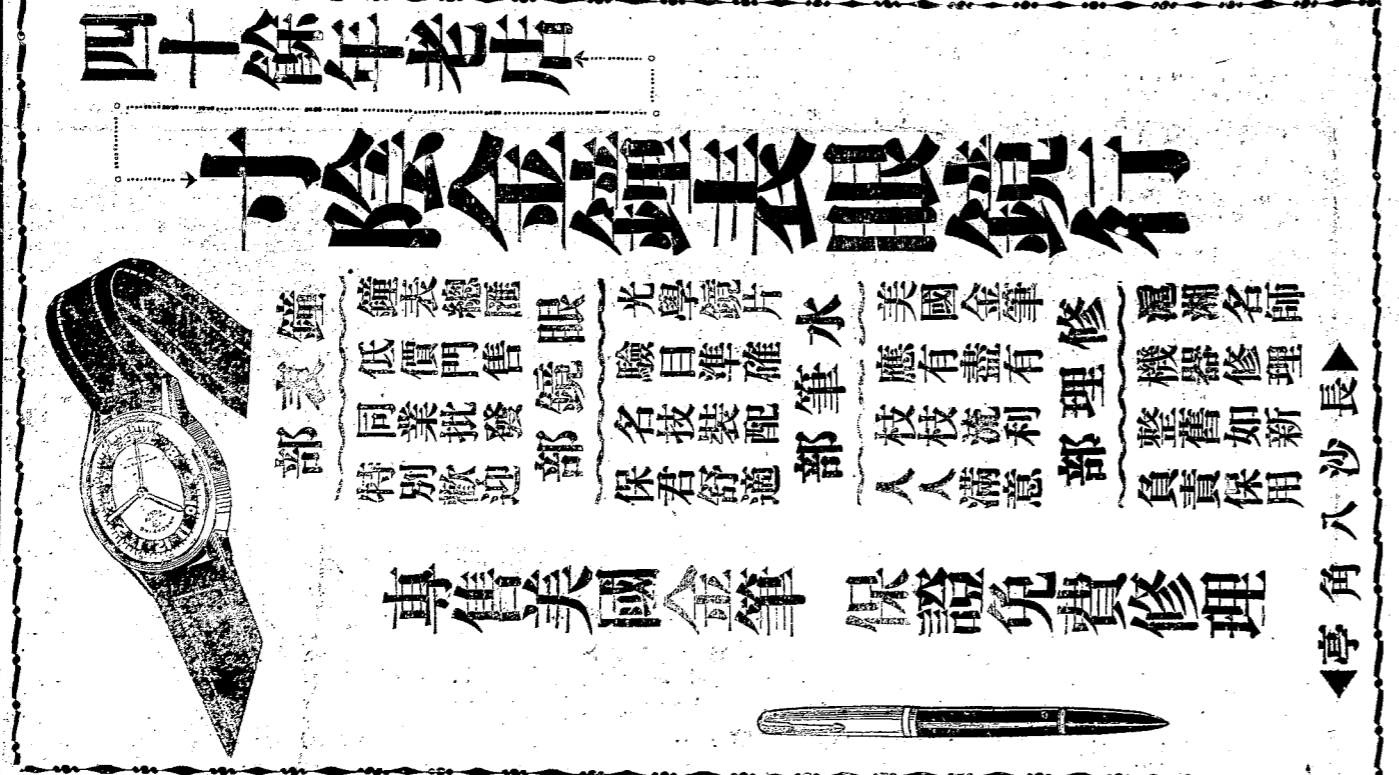 四十餘年老店
寸陰金鐘表眼鏡行
鐘表部
鐘表總匯
低價門售
同業批發
特別歡迎
眼鏡部
光學鏡片
驗目準確
名技裝配
保君舒適
水筆部
美國金筆
應有盡有
枝枝流利
人人滿意
修理部
滬湘名師
機器修理
整舊如新
負責保用
專售美國金筆
保證認真修理
長沙八角亭